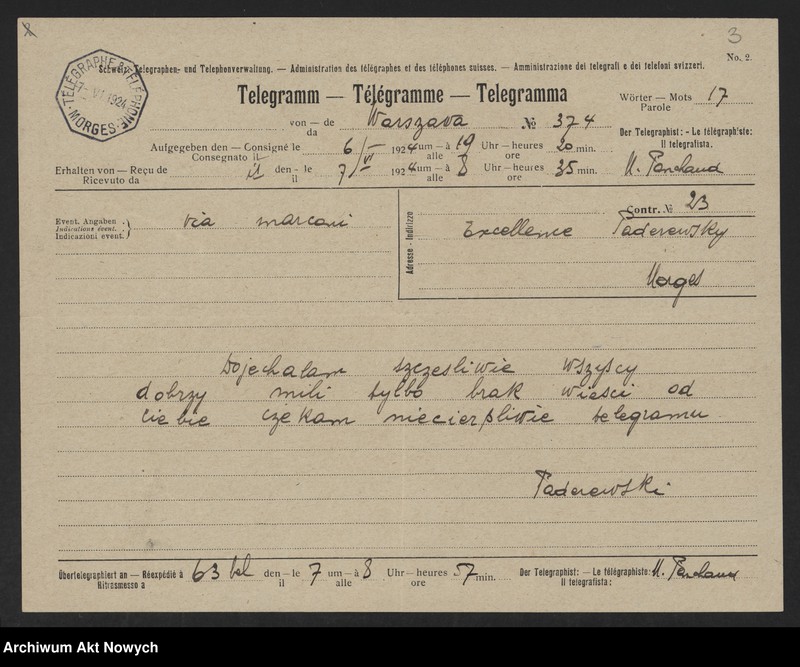 3
No. 2.
TÉLÉGRAPHE & TÉLÉPHONE
7. VI 1924
MORGES
Schweiz. Telegraphen- und Telephonverwaltung. — Administration des télégraphes et des téléphones suisses. — Amministrazione dei telegrafi e dei telefoni svizzeri.
Telegramm — Télégramme — Telegramma
Wörter — Mots 17
Parole
von — de Warszawa № 374
da
Der Telegraphist: - Le télégraphiste:
Il telegrafista.
Aufgegeben den — Consigné le 6/VI 1924 um — à 19 Uhr — heures 20 min.
Consegnato il alle ore
Erhalten von — Reçu de den - le 7/VI 1924 um — à 8 Uhr — heures 35 min.
Ricevuto da il alle ore
Event. Angaben
Indications évent.
Indicazioni event.
via marconi
Contr. № 23
Adresse - Indirizzo
Excellence Paderewsky
Morges
Dojechalam szczesliwie wszyscy
dobrzy mili tylbo brak wiesci od
ciebie czekam niecierpliwie telegramu
Paderewski
Übertelegraphiert an — Réexpédié à 63 tel den — le 7 um — à 8 Uhr — heures 57 min.
Ritrasmesso a il alle ore
Der Telegraphist: — Le télégraphiste:
Il telegrafista:
Archiwum Akt Nowych